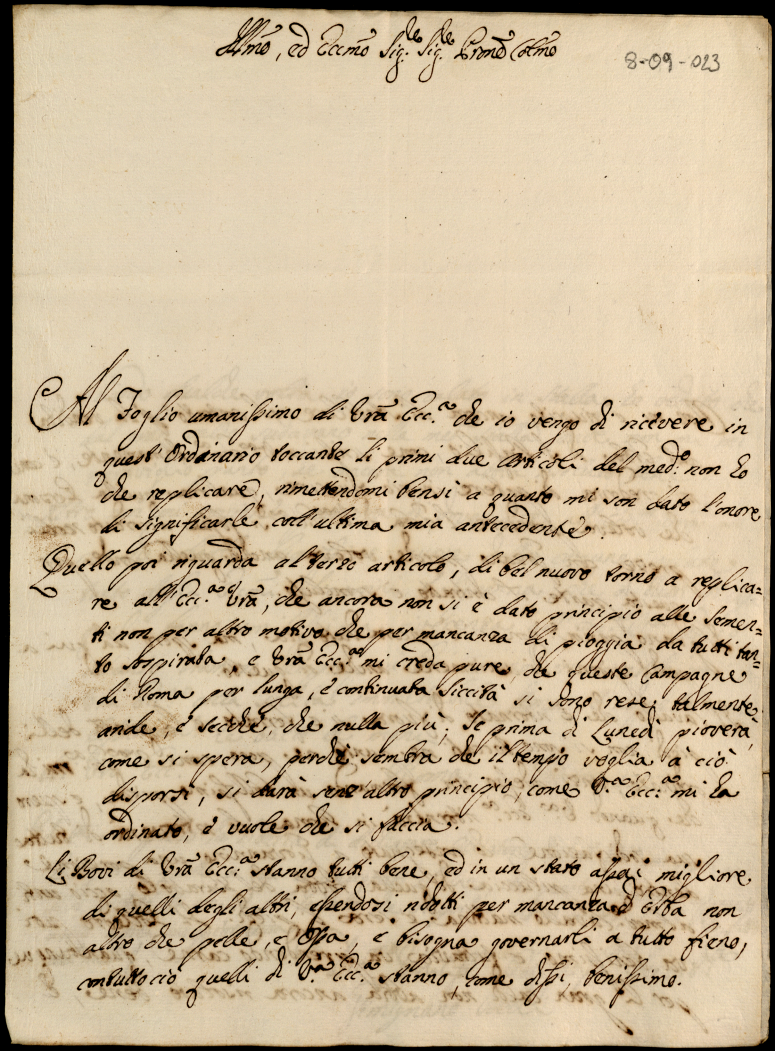 Illmo, ed Eccmo Sig.re Sig.re Prone Colmo
8-09-023
Al Foglio umanissimo di Vrã Ecc.a che io vengo di ricevere in
quest'Ordinario toccante li primi due articoli del med.o non ho
che replicare, rimettendomi bensì a quanto mi son dato l'onore
di significarle coll'ultima mia antecedente.
Quello poi riguarda al terzo articolo, di bel nuovo torno a replica=
re all'Ecc.a Vrã, che ancora non si è dato principio alle semen=
ti non per altro motivo che per mancanza di pioggia da tutti tan=
to sospirata, e Vrã Ecc.a mi creda pure, che queste Campagne
di Roma per lunga, e continuata siccità si sono rese talmente
aride, e secche, che nulla più; Se prima di Lunedì pioverà,
come si spera, perche sembra che il tempo voglia à ciò
disporsi, si darà senz'altro principio, come V.a Ecc.a mi ha
ordinato, e vuole che si faccia.
Li Bovi di Vrã Ecc.a stanno tutti bene, ed in un stato assai migliore
di quelli degli altri, essendosi ridotti per mancanza d'Erba non
altro che pelle, e Ossa, e bisogna governarli a tutto fieno,
contuttociò quelli di V.a Ecc.a stanno, come dissi, benissimo.